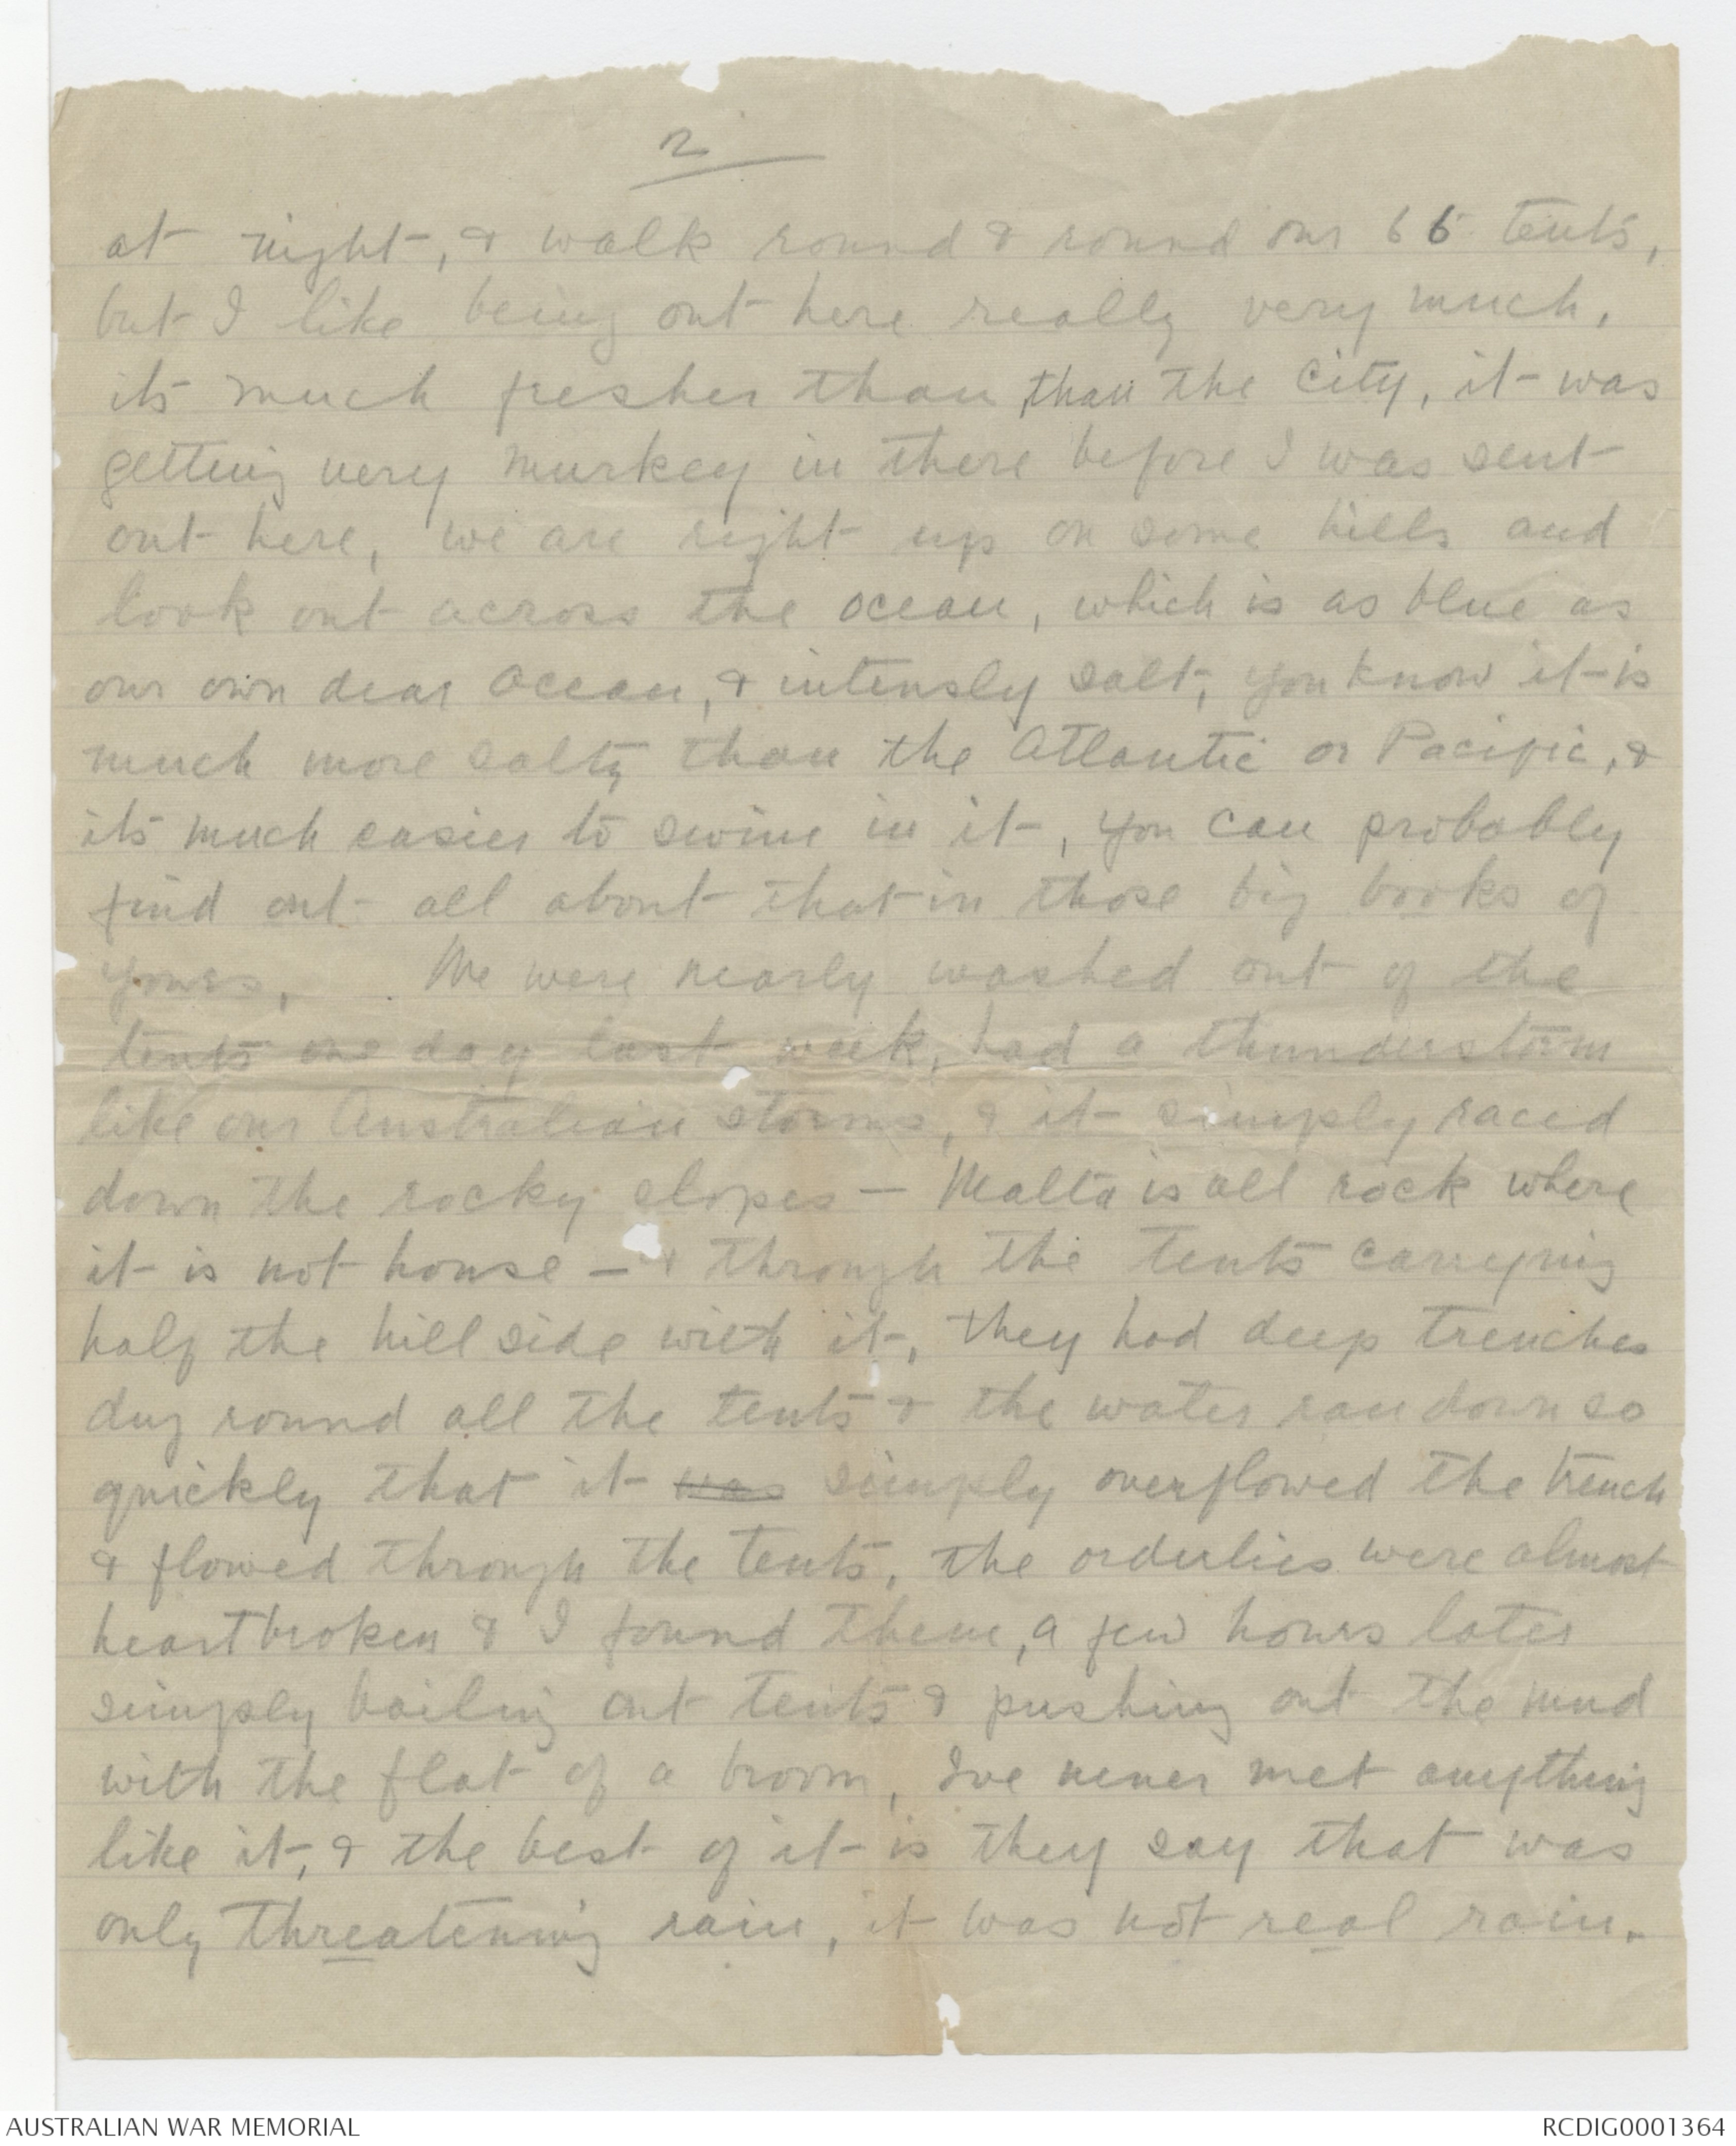 2
at night, & walk round & round our 66 tents,
but I like being out here really very much,
its much fresher than than the city, it was
getting very murkey in there before I was sent
out here, we are right up on some hills and
look out across the ocean, which is as blue as
our own dear ocean, & intensly salt, you know it is
much more salty than the Atlantic or Pacific, &
its much easier to swim in it, you can probably
find out all about that in those big books of
yours, We were nearly washed out of the
tents one day last week, had a thunderstorm
like our Australian storms, & it simply raced
down the rocky slopes — Malta is all rock where
it is not house — & through the tents carrying
half the hill side with it, they had deep trenches
dug round all the tents & the water ran down so
quickly that it was simply overflowed the trench
& flowed through the tents, the orderlies were almost
heartbroken & I found them, a few hours later
simply bailing out tents & pushing out the mud
with the flat of a broom, Ive never met anything
like it, & the best of it is they say that was
only threatening rain, it was not real rain.
AUSTRALIAN WAR MEMORIAL
RCDIG0001364